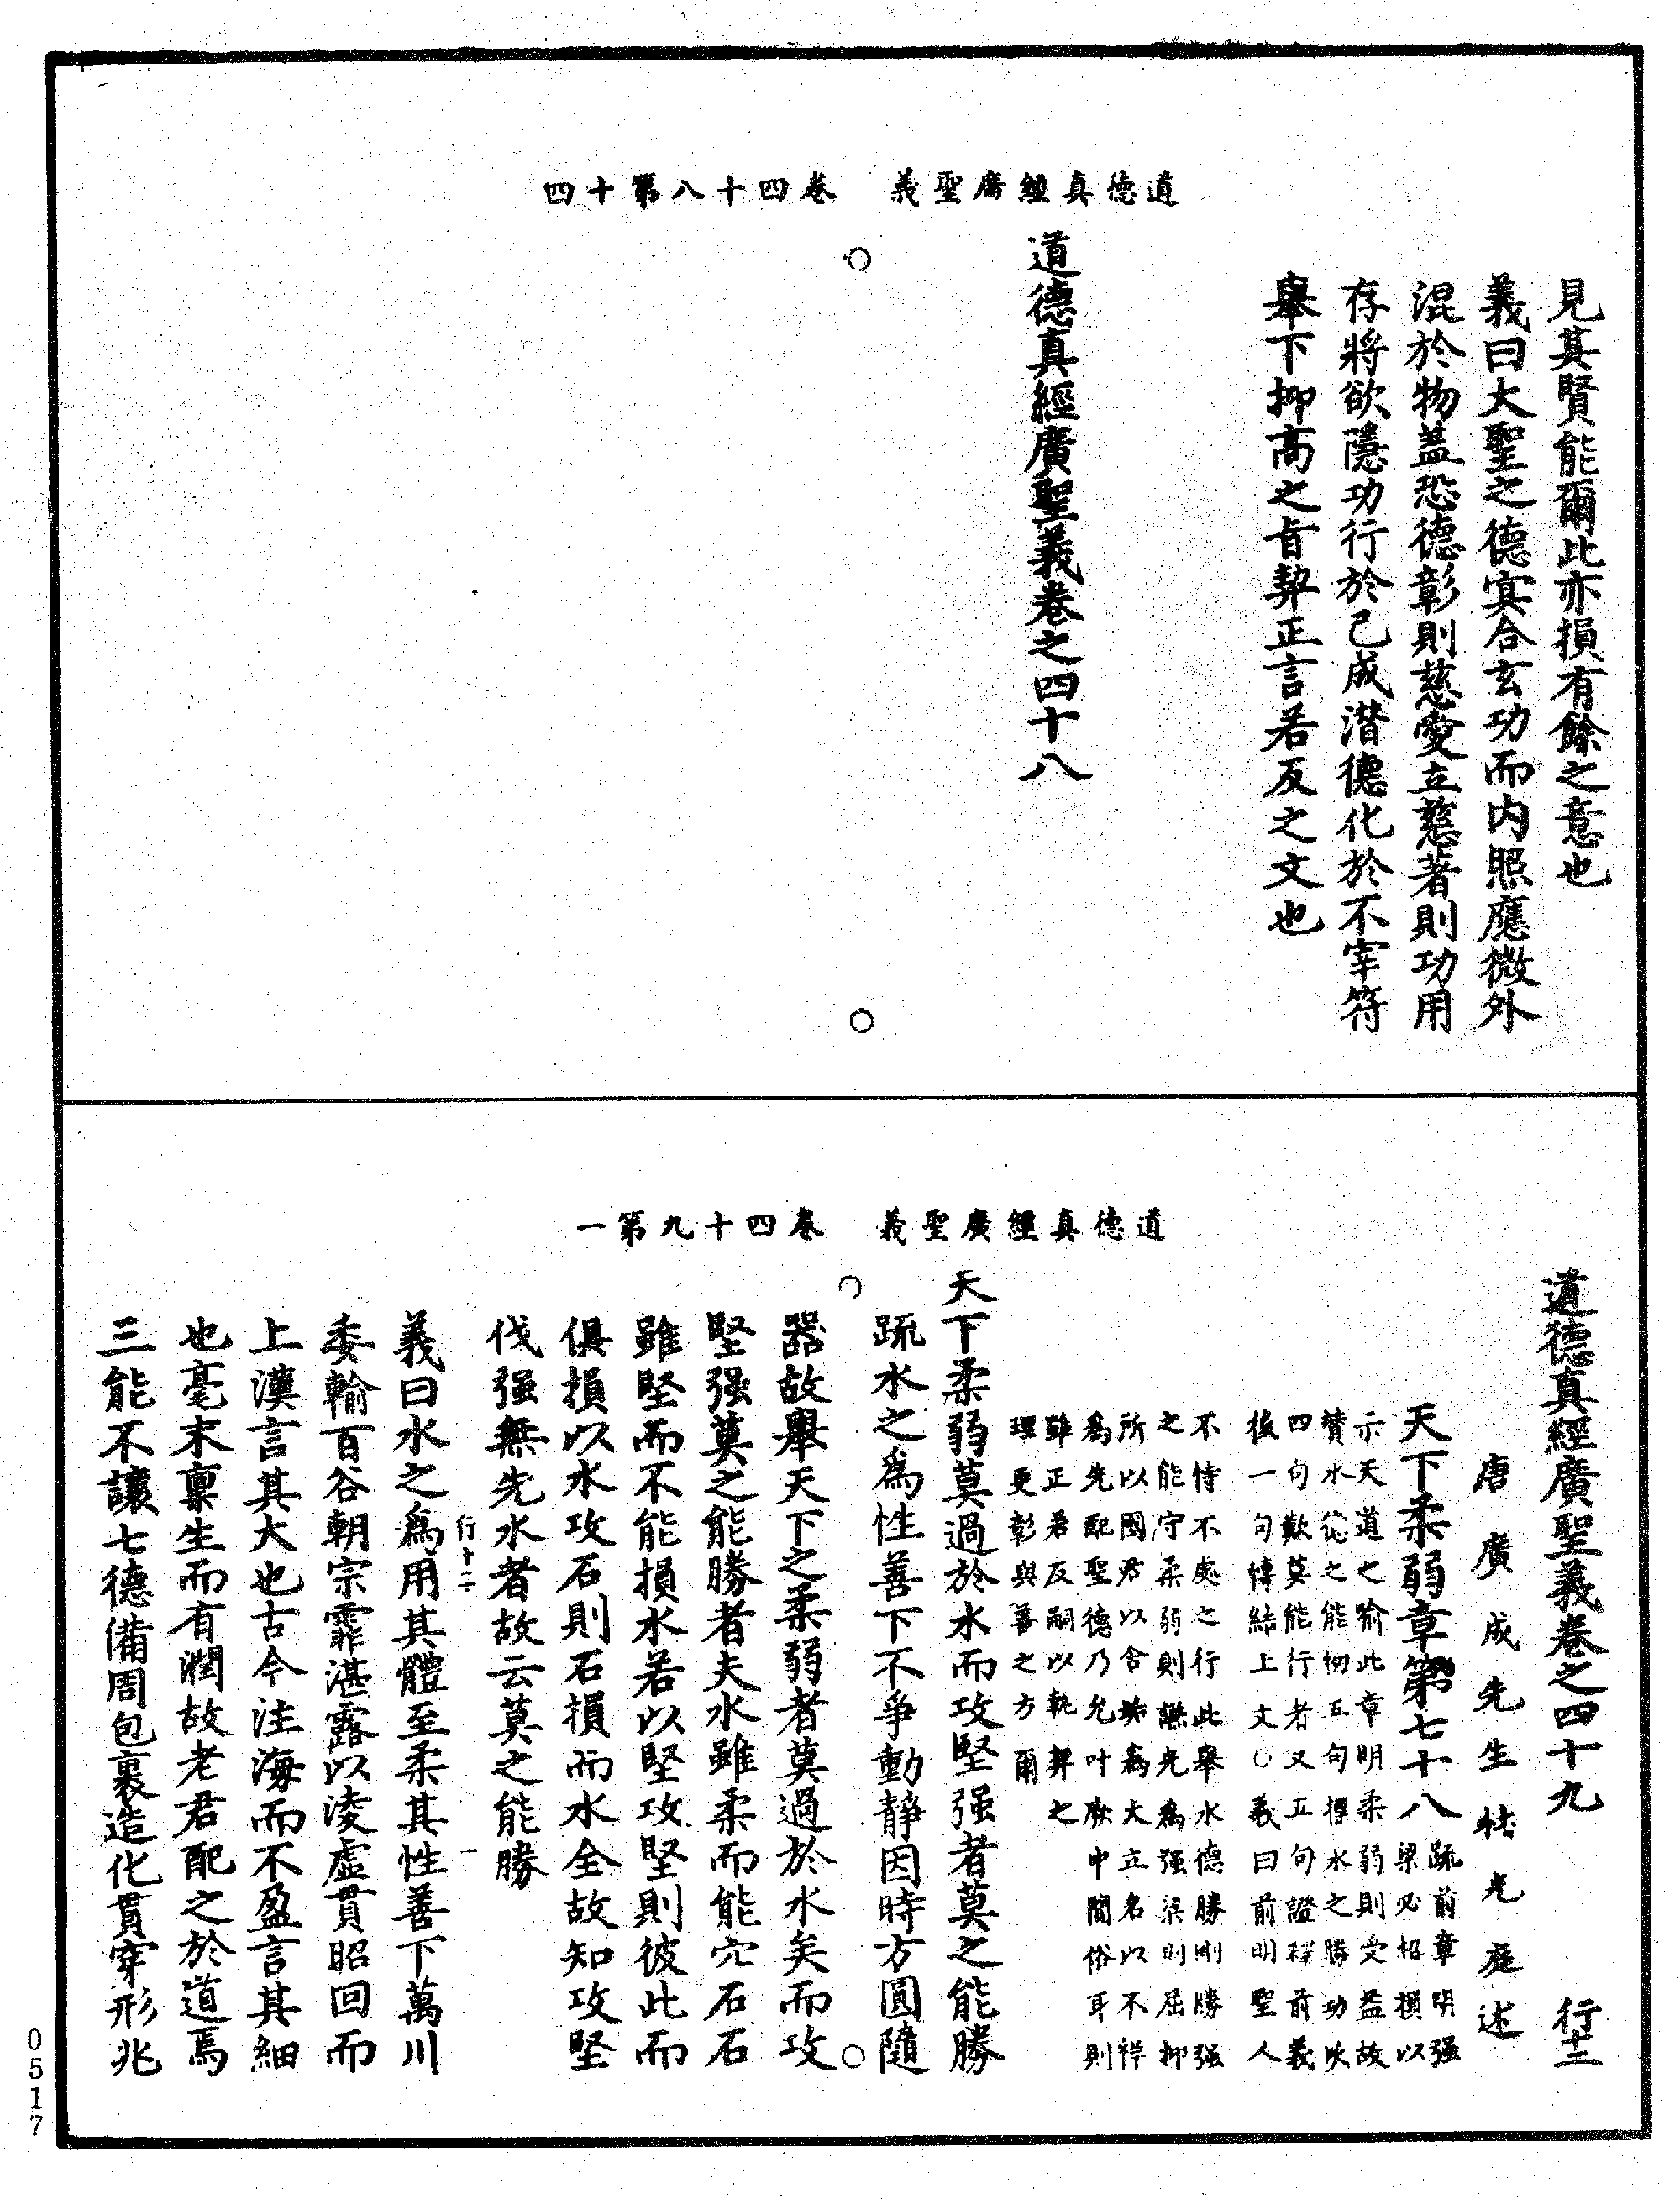 道德真經廣聖義　卷四十八第十四
見其賢能爾此亦損有餘之意也
義曰大聖之德冥合玄功而內照應微外
混於物蓋恐德彰則慈愛立慈著則功用
存將欲隱功行於己成潛德化於不宰符
舉下抑高之旨契正言若反之文也
道德真經廣聖義卷之四十八
道德真經廣聖義　卷四十九第一
道德真經廣聖義卷之四十九　行十二
唐廣成先生杜光庭述
天下柔弱章第七十八
疏前章明强
梁必招損以
示天道之喻此章明柔弱則受益故
贊水從之能初五句標水之勝功次
四句歎莫能行者又五句證釋前義
後一句博結上文○義曰前明聖人
不恃不處之行此舉水德勝剛勝强
之能守柔弱則謙光為强梁則屈抑
所以國君以含垢為大立名以不祥
為先配聖德乃允叶厥中閱俗耳則
雖正若反嗣以執契之
理更彰與善之方爾
天下柔弱莫過於水而攻堅强者莫之能勝
疏水之為性善下不爭動靜因時方圓隨
器故舉天下之柔弱者莫過於水矣而攻
堅强莫之能勝者夫水雖柔而能穴石石
雖堅而不能損水若以堅攻堅則彼此而
俱損以水攻石則石損而水全故知攻堅
伐强無先水者故云莫之能勝
行十二　一
義曰水之為用其體至柔其性善下萬川
委輸百谷朝宗霏湛露以凌虛貫昭回而
上漢言其大也古今注海而不盈言其細
也毫末稟生而有潤故老君配之於道焉
三能不讓七德備周包裹造化貫穿形兆
0517